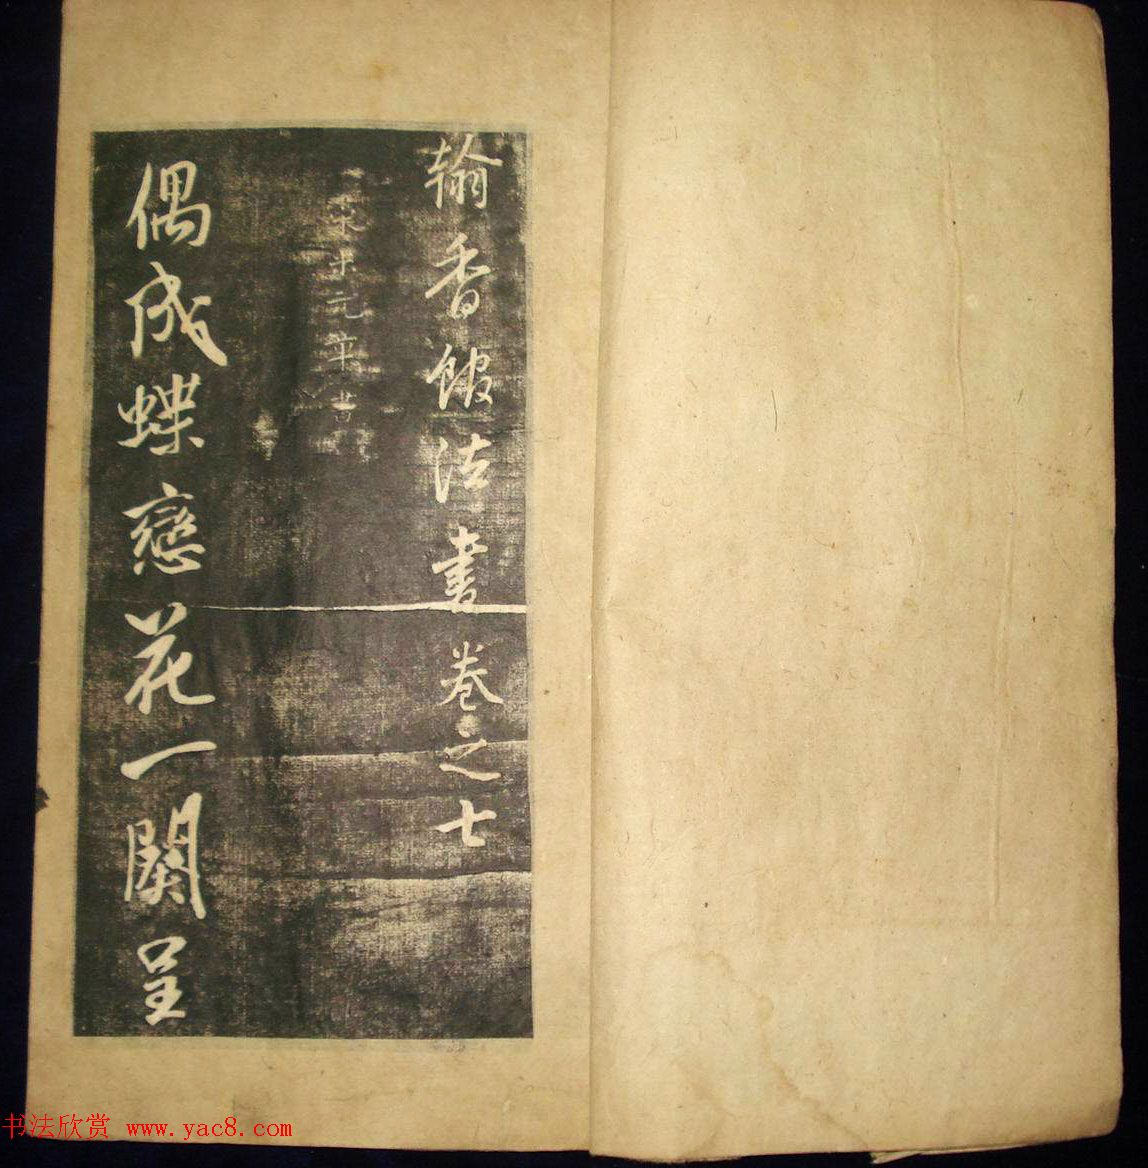 翰香館法書卷之七
宋米元章書
偶成蝶戀花一闋呈
书法欣赏 www.yac8.com